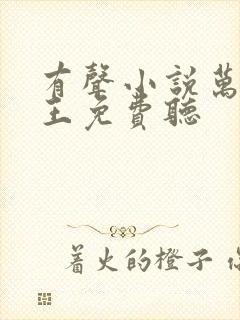 有聲小説萬
王免費聽
着火的橙子